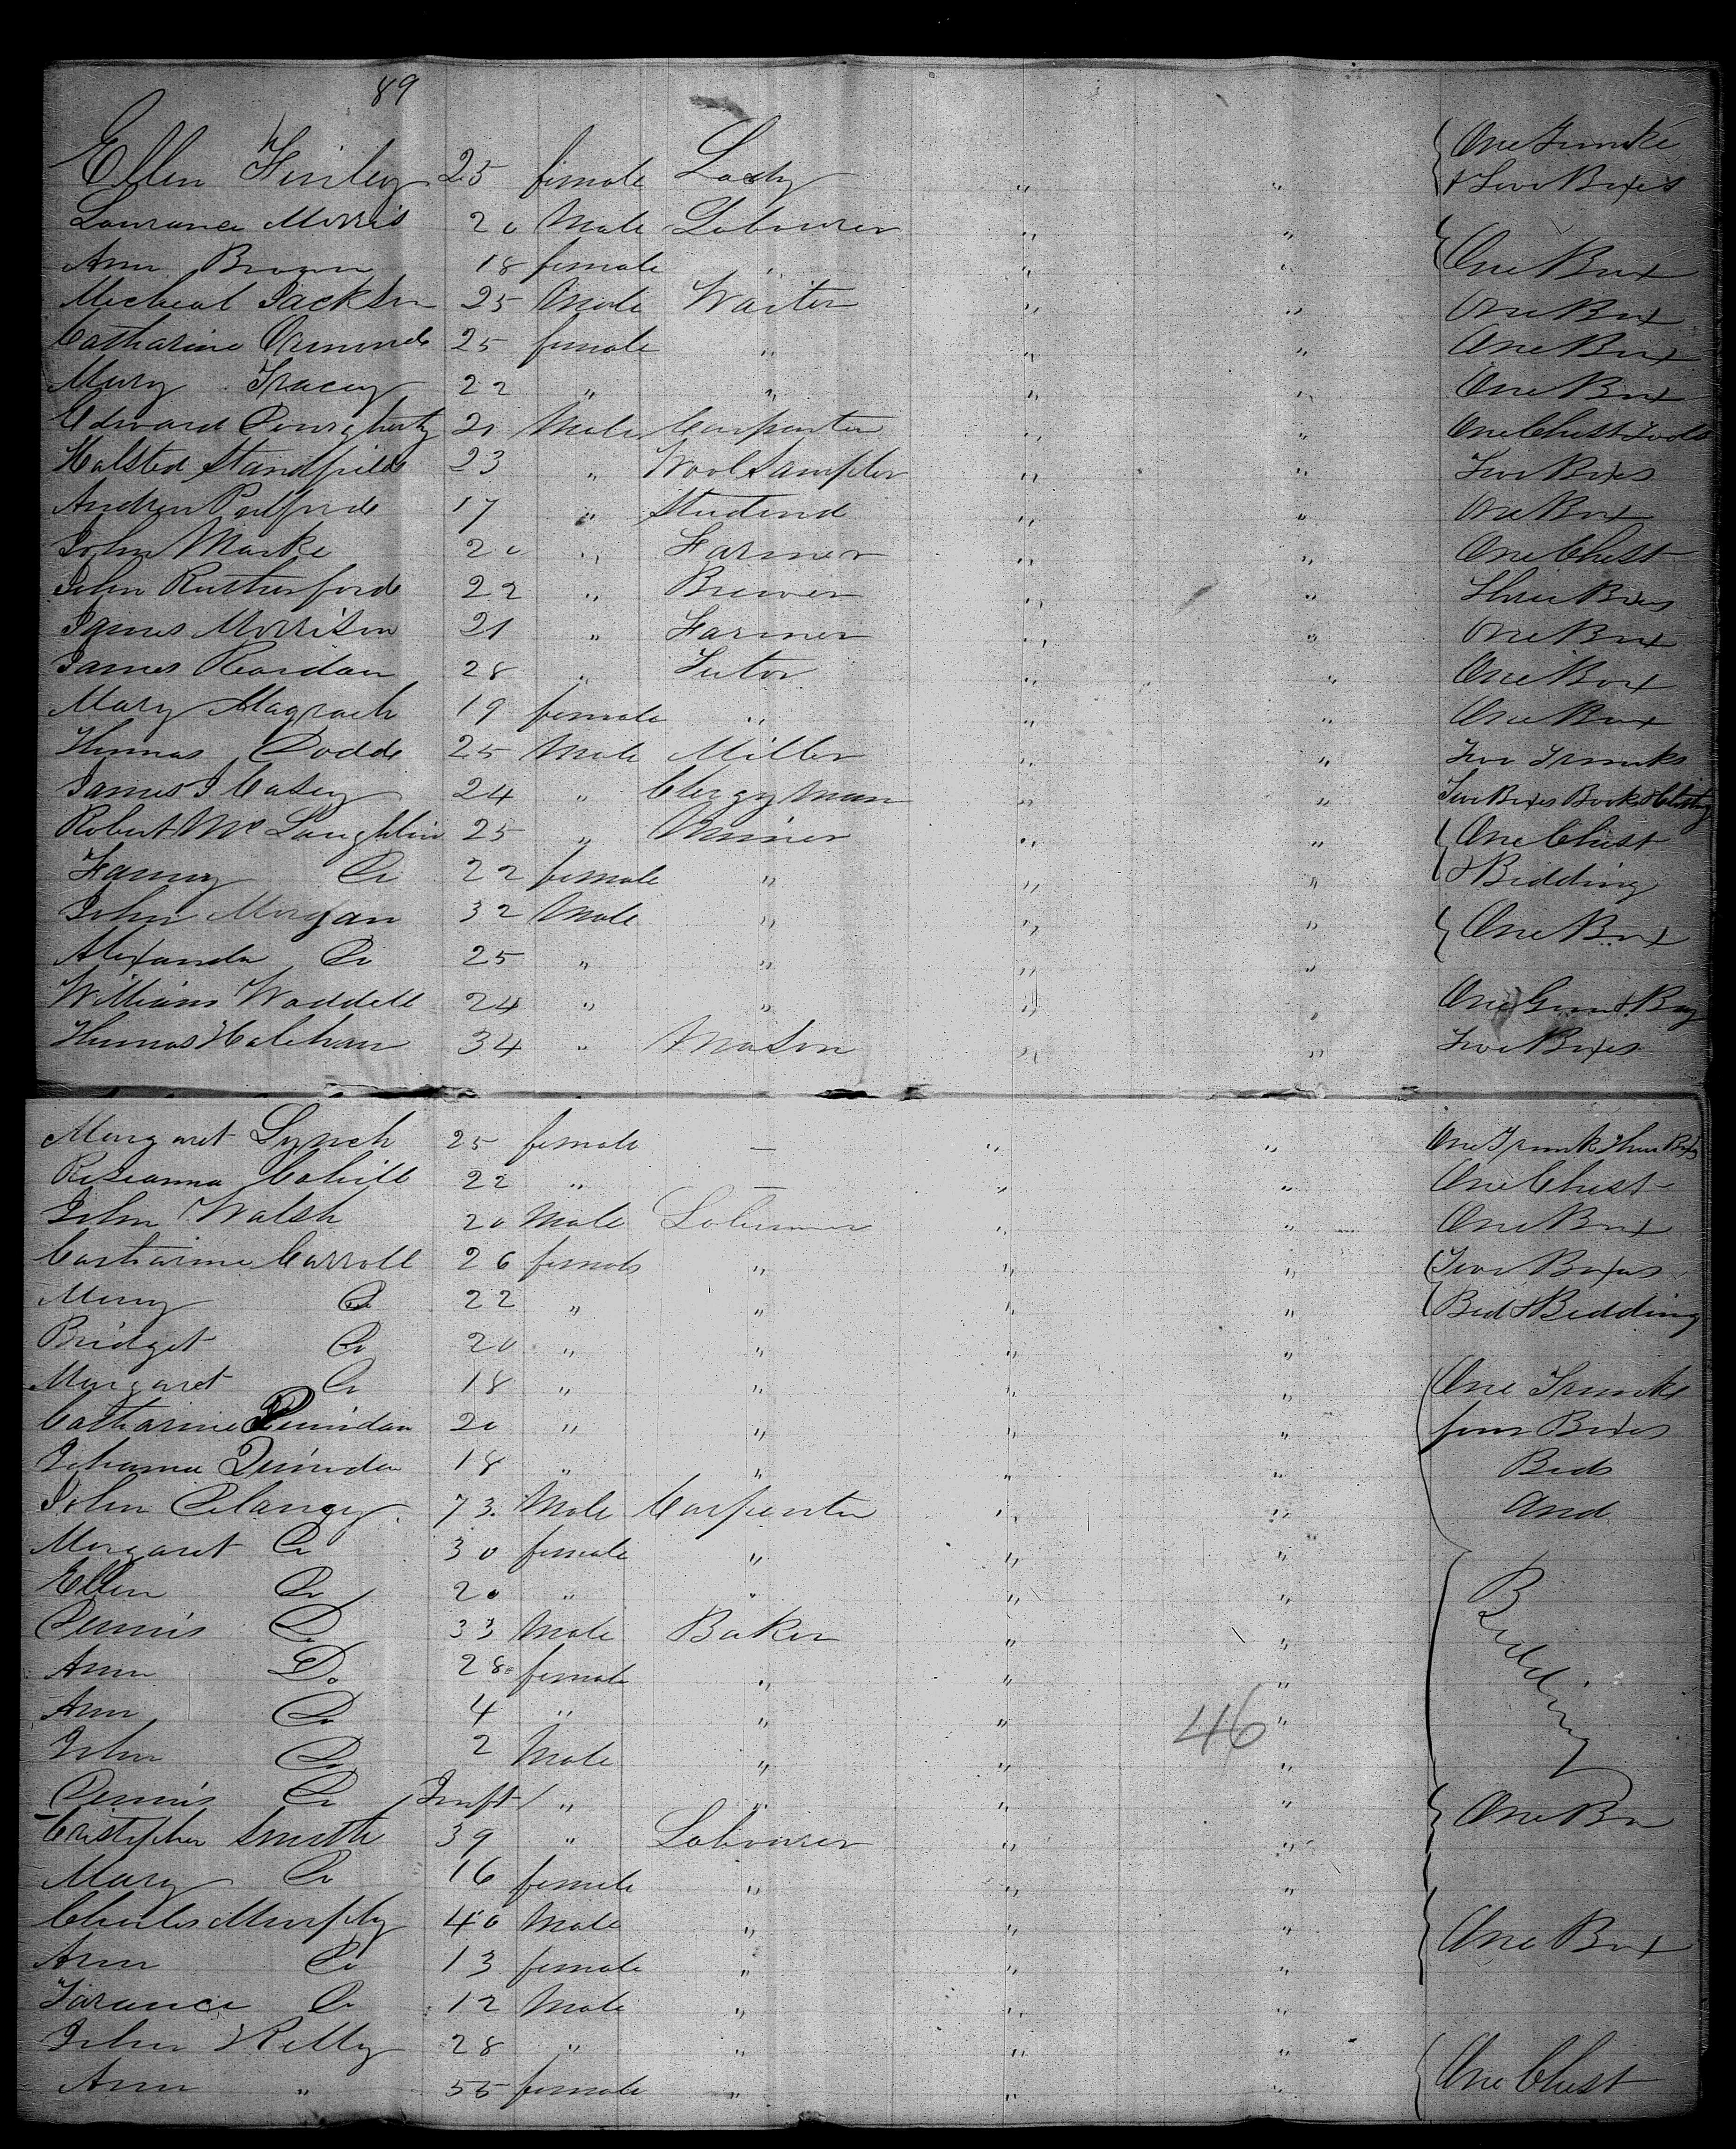 89
Ellen Finley 25 female Lady " " One Trunke
& Two Boxes
Laurance Morris 20 Male Labourer " "
Ann Brown 18 female " " " One Box
Micheal Jackson 25 Male Waiter " " One Box
Catharine Ormonde 25 female " " " One Box
Mary Tracey 22 " " " " One Box
Edward Dougherty 21 Male Carpenter " " One Chest Tools
Halsted Standfield 23 " Wool Sampler " " Two Boxes
Andrew Pulforde 17 " Studend " " One Box
John Marke 20 " Farmer " " One Chest
John Rutherforde 22 " Brewer " " Three Boxes
James Morrison 21 " Farmer " " One Box
James Reardan 28 " Tutor " " One Box
Mary Magrach 19 female " " " One Box
Thomas Dodde 25 Male Miller " " Two Trunks
James J Casey 24 " Clergyman " " Two Boxes Books & Clothing
Robert Mc Laughlin 25 " Miner " " One Chest
Fanny Do 22 female " " " & Bedding
John Morgan 32 Male " " " One Box
Alexander Do 25 " " " "
William Waddell 24 " " " " One Gun & Bag
Thomas Halehan 34 " Mason " " Two Boxes
Margaret Lynch 25 female — " " One Trunk Three Boxes
Roseanna Cahill 22 " — " " One Chest
John Walsh 20 Male Labourer " " One Box
Catharine Carroll 26 female " " " Two Boxes
Mary Do 22 " " " " Bed & Bedding
Bridget Do 20 " " " "
Margaret Do 18 " " " " One Trunke
Catharine Quindan 20 " " " " four Boxes
Johanna Quindan 18 " " " " Beds
John Clancy 73 Male Carpenter " " And
Margaret Do 30 female " " "
Ellen Do 20 " " " " Bedding
Dennis Do 33 Male Baker " "
Ann Do 28 female " " "
Ann Do 4 " " " 46 "
John Do 2 Male " " "
Dennis Do Inft " " " " One Bo
Cristopher Smith 39 " Labourer " "
Mary Do 16 female " " "
Charles Murphy 40 Male " " " One Box
Ann Do 13 female " " "
Tarance Do 12 Male " " "
John Kelly 28 " " " "
Ann " 55 female " " " One Chest